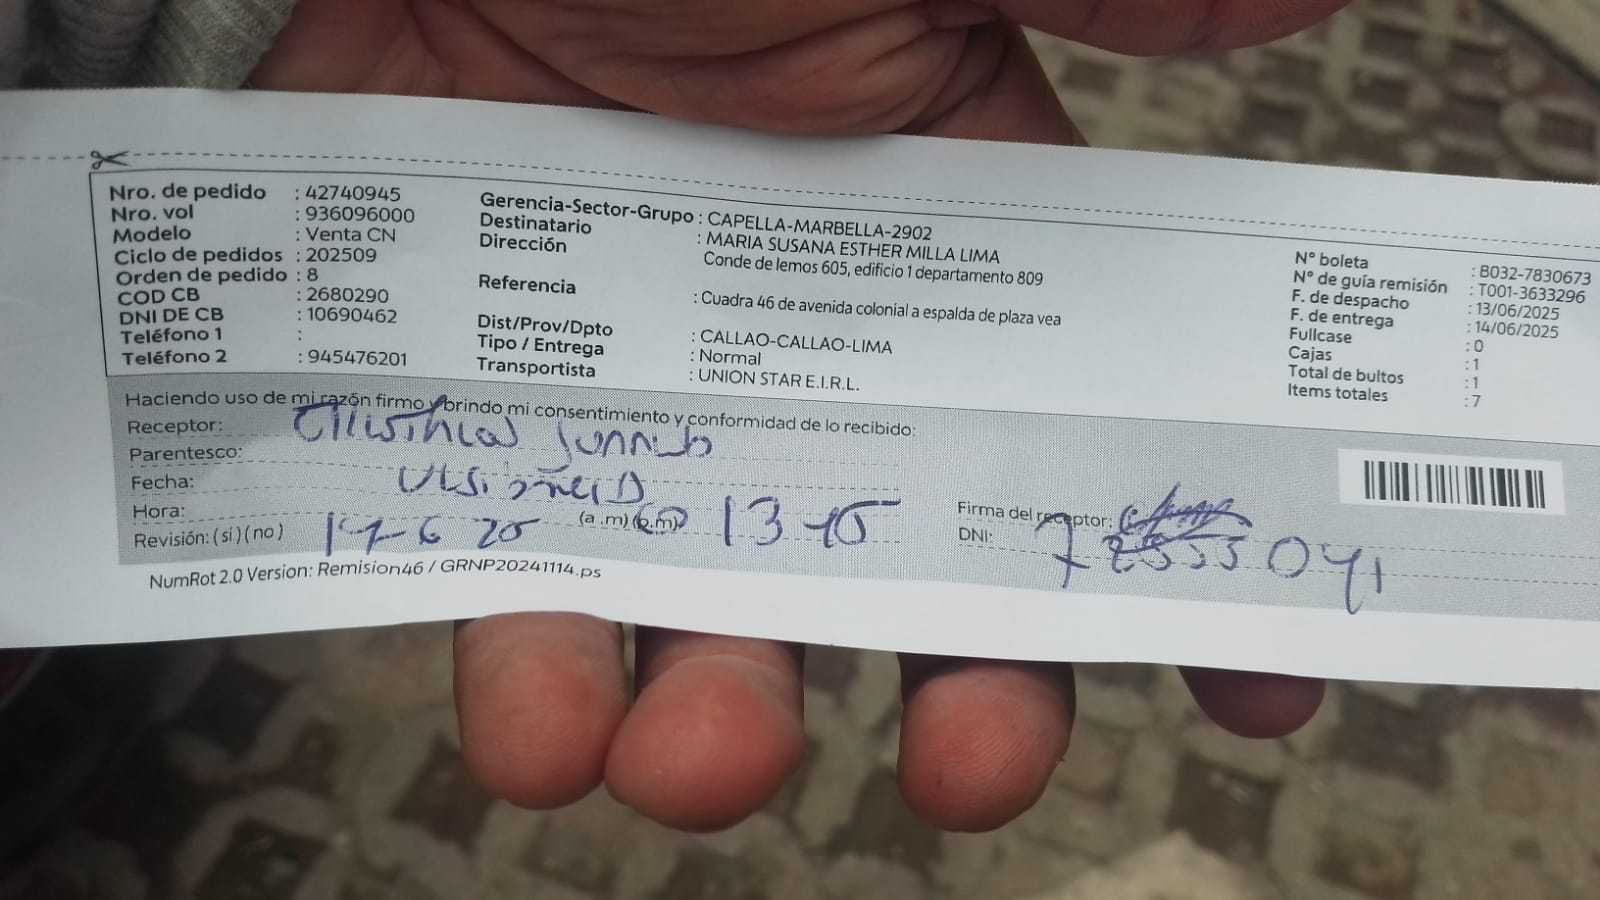 Nro. de pedido : 42740945
Nro. vol : 936096000
Modelo : Venta CN
Ciclo de pedidos : 202509
Orden de pedido : 8
COD CB : 2680290
DNI DE CB : 10690462
Teléfono 1 :
Teléfono 2 : 945476201
Gerencia-Sector-Grupo : CAPELLA-MARBELLA-2902
Destinatario : MARIA SUSANA ESTHER MILLA LIMA
Dirección Conde de lemos 605, edificio 1 departamento 809
Referencia : Cuadra 46 de avenida colonial a espalda de plaza vea
Dist/Prov/Dpto : CALLAO-CALLAO-LIMA
Tipo / Entrega : Normal
Transportista : UNION STAR E.I.R.L.
N° boleta : B032-7830673
N° de guía remisión : T001-3633296
F. de despacho : 13/06/2025
F. de entrega : 14/06/2025
Fullcase : 0
Cajas : 1
Total de bultos : 1
Items totales : 7
Haciendo uso de mi razón firmo y brindo mi consentimiento y conformidad de lo recibido:
Receptor:
Parentesco:
Fecha:
Hora: (a.m) (p.m) 13
Revisión: (si) (no)
Firma del receptor:
DNI:
NumRot 2.0 Version: Remision46 / GRNP20241114.ps